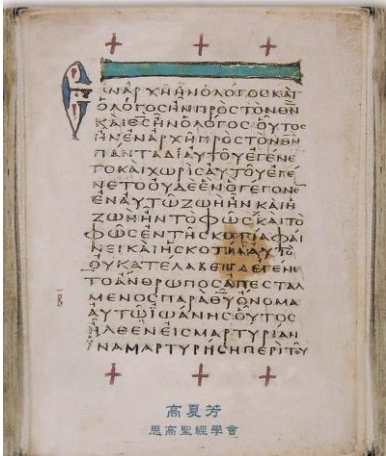 ΕΝΑΡΧΗΗΝΟΛΟΓΟϹΚΑΙ
ΟΛΟΓΟϹΗΝΠΡΟϹΤΟΝΘΝ
ΚΑΙΘϹΗΝΟΛΟΓΟϹΟΥΤΟϹ
ΗΝΕΝΑΡΧΗΠΡΟϹΤΟΝΘΝ
ΠΑΝΤΑΔΙΑΥΤΟΥΕΓΕΝΕ
ΤΟΚΑΙΧΩΡΙϹΑΥΤΟΥΕΓΕ
ΝΕΤΟΟΥΔΕΕΝΟΓΕΓΟΝΕ
ΕΝΑΥΤΩΖΩΗΗΝΚΑΙΗ
ΖΩΗΗΝΤΟΦΩϹΚΑΙΤΟ
ΦΩϹΕΝΤΗϹΚΟΤΙΑΦΑΙ
ΝΕΙΚΑΙΗϹΚΟΤΙΑΑΥΤΟ
ΟΥΚΑΤΕΛΑΒΕΝ ΕΓΕΝΕ
ΤΟΑΝΘΡΩΠΟϹΑΠΕϹΤΑΛ
ΜΕΝΟϹΠΑΡΑΘΥΟΝΟΜΑ
ΑΥΤΩΙΩΑΝΗϹΟΥΤΟϹ
ΗΛΘΕΝΕΙϹΜΑΡΤΥΡΙΑΝ
ΙΝΑΜΑΡΤΥΡΗϹΗΠΕΡΙΤΟΥ
高夏芳
思高聖經學會